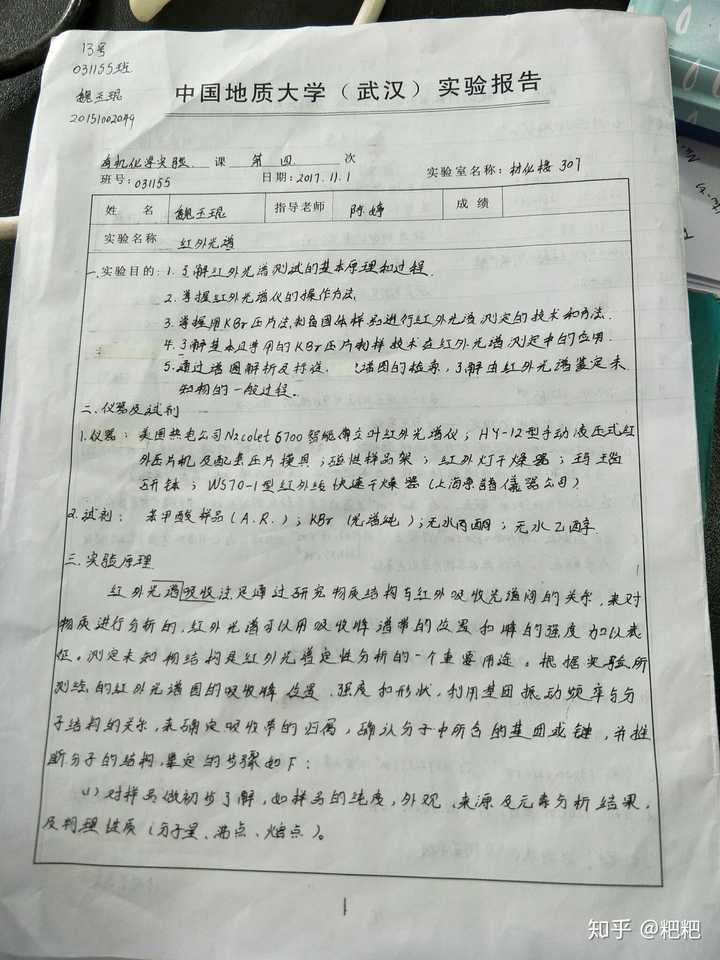 13号
031155班
魏玉琨
20151002049
中国地质大学（武汉）实验报告
有机化学实验 课 第 四 次
班号：031155 日期：2017.11.1 实验室名称：材化楼 307
姓 名 魏玉琨 指导老师 陈婷 成 绩
实验名称 红外光谱
一.实验目的：1.了解红外光谱测试的基本原理和过程.
2.掌握红外光谱仪的操作方法.
3.掌握用KBr压片法制备固体样品进行红外光谱测定的技术和方法.
4.了解基本且常用的KBr压片制样技术在红外光谱测定中的应用.
5.通过谱图解析及标准 谱图的检索,了解由红外光谱鉴定未
知物的一般过程.
二.仪器及试剂
1.仪器：美国热电公司Nicolet 6700智能傅立叶红外光谱仪；HY-12型手动液压式红
外压片机及配套压片模具；磁性样品架；红外灯干燥器；玛瑙
研钵；WS70-1型红外线快速干燥器(上海 儀器公司)
2.试剂：苯甲酸样品(A.R.)；KBr(光谱纯)；无水丙酮；无水乙醇.
三.实验原理
红外光谱吸收法是通过研究物质结构与红外吸收光谱间的关系,来对
物质进行分析的,红外光谱可以用吸收峰谱带的位置和峰的强度加以表
征。测定未知物结构是红外光谱定性分析的一个重要用途。根据实验所
测绘的红外光谱图的吸收峰位置、强度和形状,利用基团振动频率与分
子结构的关系,来确定吸收带的归属,确认分子中所含的基团或键,并推
断分子的结构,鉴定的步骤如下：
(1)对样品做初步了解,如样品的纯度,外观、来源及元素分析结果,
及物理性质(分子量、沸点、熔点)。
1
知乎 @粑粑